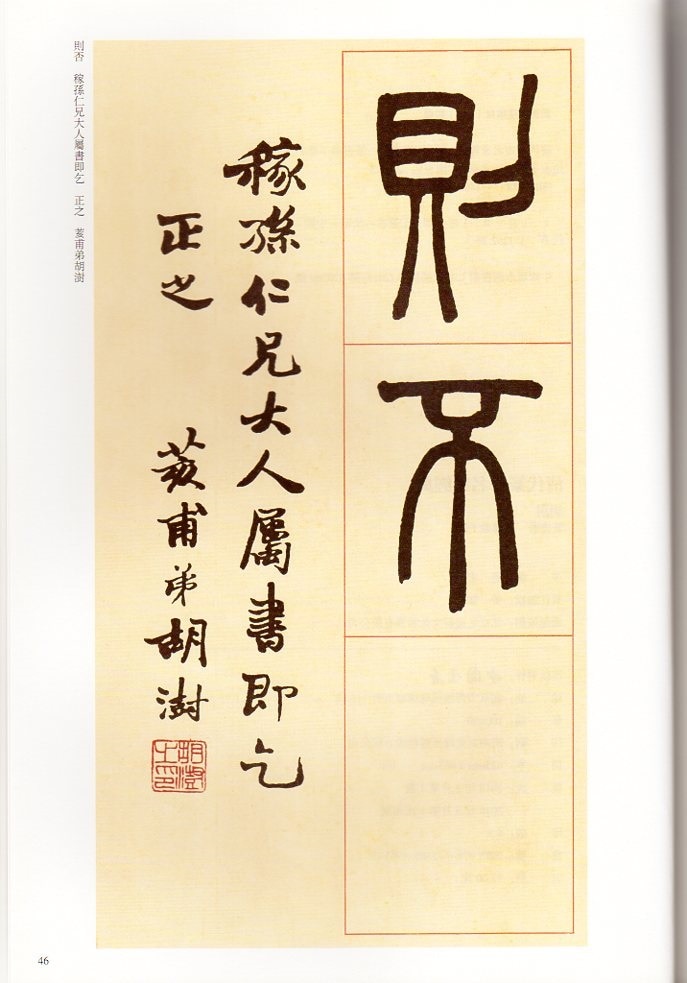 則不
稼孫仁兄大人屬書即乞
正之 荄甫弟胡澍
胡澍之印
則否 稼孫仁兄大人屬書即乞 正之 荄甫弟胡澍
46